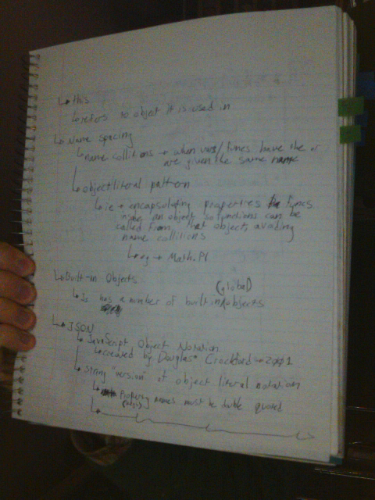 ↳ this
↳ refers to object it is used in
↳ Name spacing
↳ name collitions → when vars/funcs have the or
are given the same name
↳ object literal pattern
↳ ie → encapsulating properties & funcs
in an object so functions can be
called from that object, avoiding
name collitions
↳ eg → Math.PI
↳ Built-in Objects
(global)
↳ Js has a number of built in objects
↳ JSON
↳ JavaScript Object Notation
↳ created by Douglas Crockford in 2001
↳ string "version" of object literal notation
↳ Property names must be double quoted